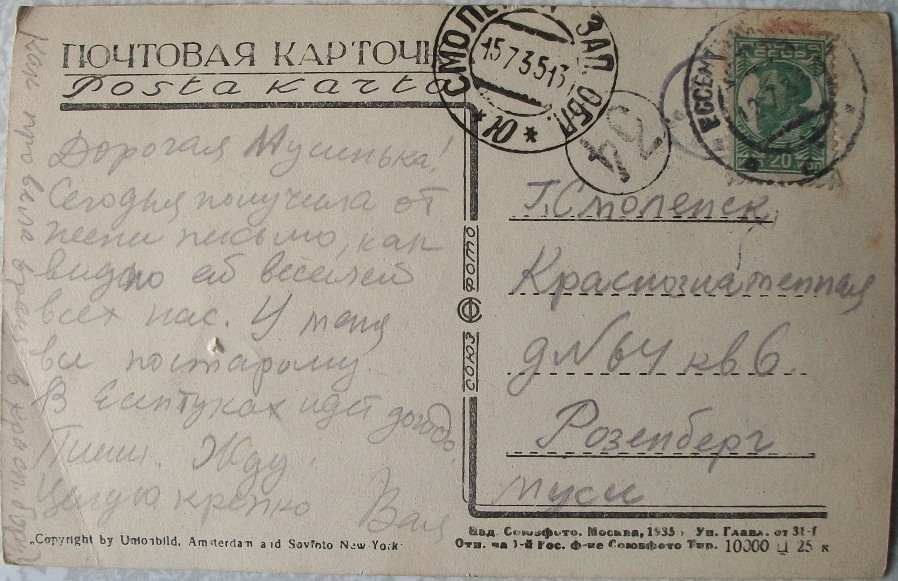 ПОЧТОВАЯ КАРТОЧК
Posta karta
Дорогая Мусинька!
Сегодня получила от
письмо, как
видно ей веселей
всех нас. У меня
все постарому.
В Есентуках идет дождь
Пиши. Жду.
Целую крепко Валя
Как провела время в
„Copyright by Unionbild. Amsterdam and Sovfoto New-York“
СОЮЗ ФОТО
СМОЛЕН ЗАП. ОБЛ.
15.7.35.13
* Ю *
34
ЕССЕНТ
12.7.3
20
Г. Смоленск
Краснознаменная
д № 64 кв 6.
Розенберг
Муси
Изд. Союзфото. Москва, 1935 г. Уп. Главл. от 31-I
Отп. на 1-й Гос. ф-ке Союзфото Тир. 10000 Ц 25 к